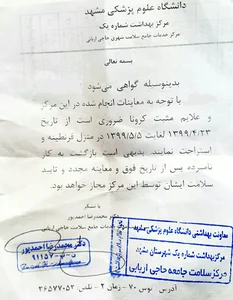 دانشگاه علوم پزشکی مشهد
مرکز بهداشت شماره یک
مرکز خدمات جامع سلامت شهری حاجی اربابی
بسمه تعالی
بدینوسیله گواهی می‌شود
با توجه به معاینات انجام شده در این مرکز
و علایم مثبت کرونا ضروری است از تاریخ
۱۳۹۹/۴/۲۳ لغایت ۱۳۹۹/۵/۵ در منزل قرنطینه و
استراحت نمایند. بدیهی است بازگشت به کار
نامبرده پس از تاریخ فوق و معاینه مجدد و تایید
سلامت ایشان توسط این مرکز مجاز خواهد بود.
با تشکر
دکتر محمدرضا احمدپور
دکتر محمدرضا احمدپور
۹۱۱۵۷
معاونت بهداشتی دانشگاه علوم پزشکی مشهد
مرکز بهداشت شماره یک شهرستان مشهد
مرکز سلامت جامعه حاجی اربابی
آدرس: توس ۷۰ - زمان ۲ - تلفن: ۳۶۵۷۷۰۵۳